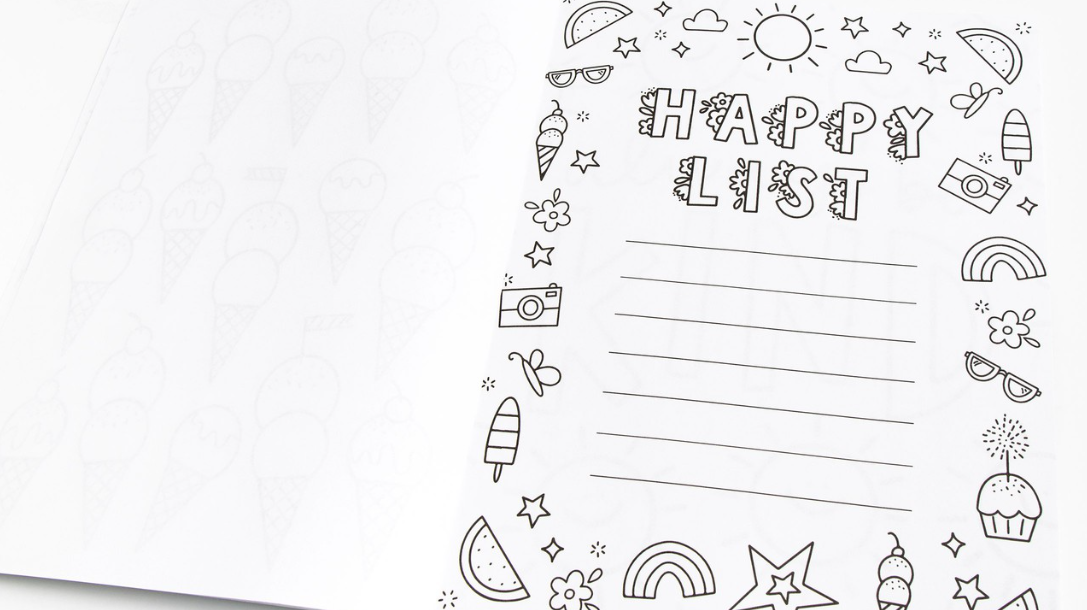 HAPPY
LIST